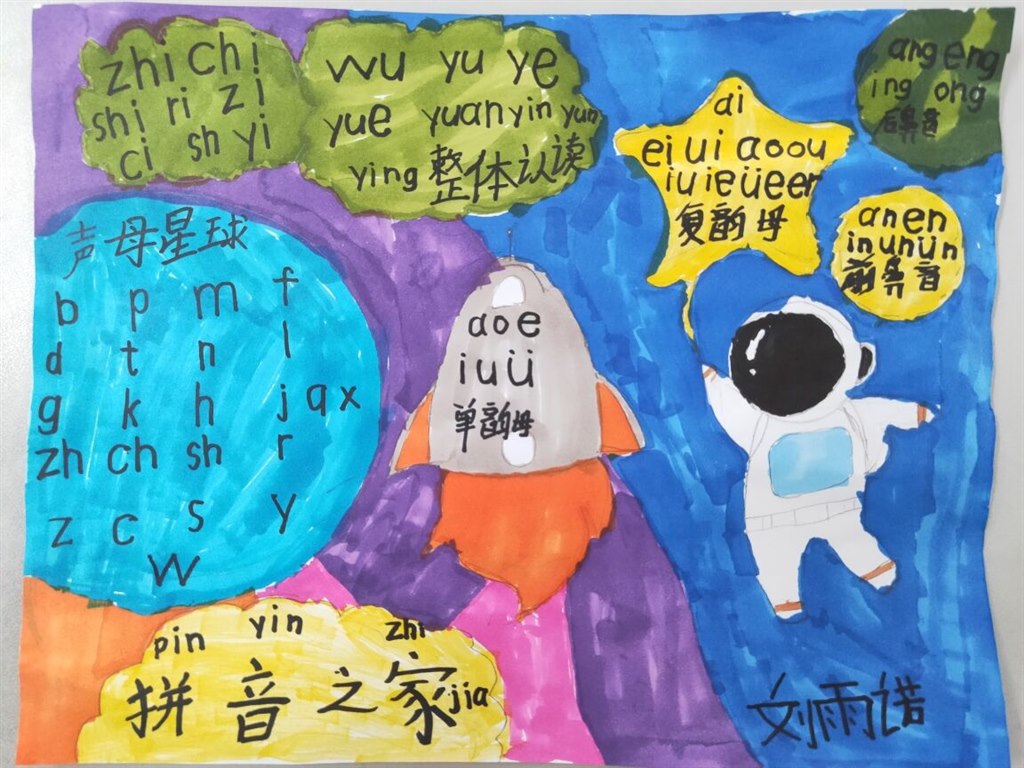 zhi chi
shi ri zi
ci sh yi
wu yu ye
yue yuan yin yun
ying 整体认读
ai
ei ui ao ou
iu ie üe er
复韵母
ang eng
ing ong
后鼻音
an en
in un ün
前鼻音
声母星球
b p m f
d t n l
g k h j q x
zh ch sh r
z c s y
w
a o e
i u ü
单韵母
pin yin zhi
拼音之家 jia
刘雨诺